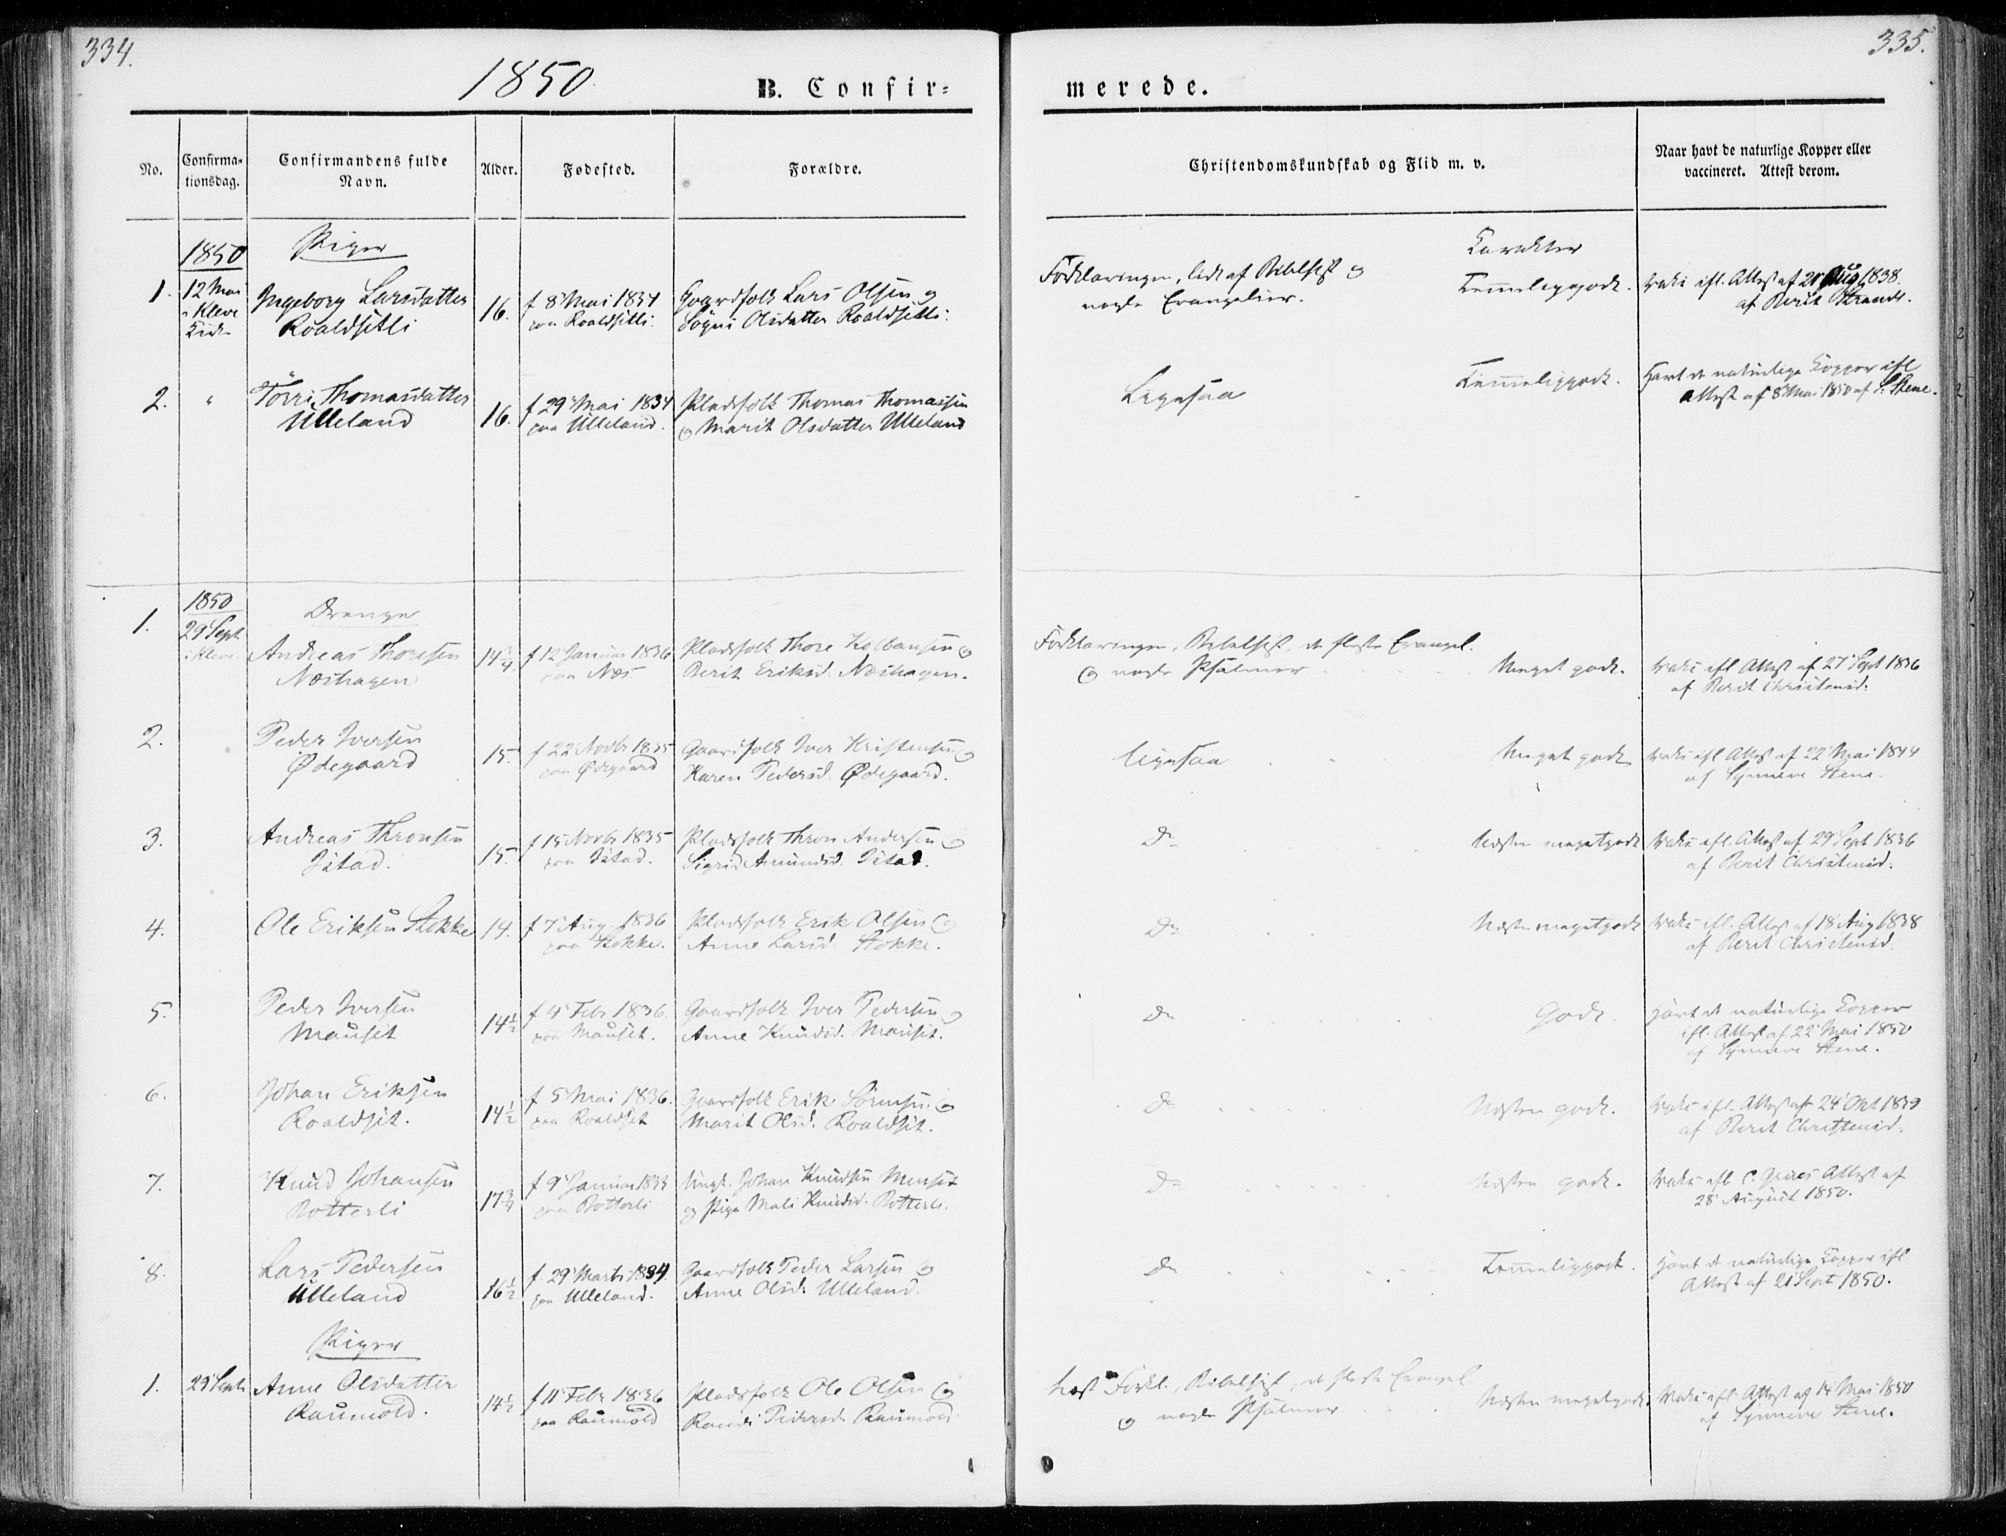 334.
335.
1850.
B. Confir=
merede.
No.
Confirma-
tionsdag.
Confirmandens fulde
Navn.
Alder.
Fødested.
Forældre.
Christendomskundskab og Flid m. v.
Naar havt de naturlige Kopper eller
vaccineret. Attest derom.
1850
Piger
Karakter
1.
12 Mai
i Kleve
Kirke
Ingeborg Larsdatter
Roaldsetli
16.
f 8 Mai 1834
paa Roaldsetli.
Gaardfolk Lars Olsen og
Sögni Olsdatter Roaldsetli.
Forklaringen, lidt af Bibelhist. og
nogle Evangelier.
Temmeliggodt.
Vakc. ifl. Attest af 20 Aug 1838.
af Berit Strande.
2.
"
Törri Thomasdatter
Ulleland
16.
f 29 Mai 1834
paa Ulleland.
Pladsfolk Thomas Thomassen
og Marit Olsdatter Ulleland
Ligesaa
Temmeliggodt.
Havt de naturlige Kopper ifl
Attest af 8 Mai 1850 af S. Stene.
1850
Drenge
1.
29 Sept.
i Kleve.
Andreas Thoresen
Næshagen
14 3/4.
f 12 Januar 1836
paa Næs
Pladsfolk Thore Kolbansen og
Berit Eriksd. Næshagen.
Forklaringen, Bibelhist., de fleste Evangel.
og nogle Psalmer
Meget godt.
Vakc. ifl. Attest af 27 Sept 1836
af Berit Christensd.
2.
Peder Iversen
Ødegaard
15.
f 22 Novbr 1835
paa Ødegaard
Gaardfolk Iver Kristensen og
Karen Pedersd. Ødegaard.
ligesaa
Meget godt
Vakc. ifl. Attest af 22 Mai 1844
af Synneve Stene.
3.
Andreas Thronsen
Istad.
15.
f 15 Novbr 1835
paa Istad.
Pladsfolk Thron Andersen og
Sigrid Amundsd. Istad.
Do
Næsten megetgodt
Vakc. ifl. Attest af 29 Sept 1836
af Berit Christensd.
4.
Ole Eriksen Stokke
14.
f 7 Aug. 1836
paa Stokke.
Pladsfolk Erik Olsen og
Anne Larsd. Stokke.
Do
Næsten megetgodt
Vakc. ifl. Attest af 18 Aug 1838
af Berit Christensd.
5.
Peder Iversen
Mauset
14 1/2
f 4 Febr 1836.
paa Mauset.
Gaardfolk Iver Pedersen og
Anne Knudsd. Mauset.
Do
Godt.
Havt de naturlige Kopper
ifl. Attest af 22 Mai 1850
af Synneve Stene.
6.
Johan Eriksen
Roaldset.
14 1/2
f 5 Mai 1836.
paa Roaldset
Gaardfolk Erik Sörensen og
Marit Olsd. Roaldset.
Do
Næsten godt.
Vakc. ifl. Attest af 24 Okt 1839
af Berit Christensd.
7.
Knud Johansen
Botterli
17 3/4
f 9 Januar 1833
paa Botterli
Ungk. Johan Knudsen Mauset
og Pige Mali Knudsd. Botterli.
Do
Næsten godt.
28 August 1850.
8.
Lars Pedersen
Ulleland
16 1/2
f. 29 Marts 1834
paa Ulleland.
Gaardfolk Peder Larsen og
Anne Olsd. Ulleland.
Do
Temmeliggodt.
Havt de naturlige Kopper ifl
Attest af 21 Sept 1850.
Piger
1.
29 Sept.
Anne Olsdatter
Raumold.
14 1/2
f 11 Febr 1836
paa Raumold
Pladsfolk Ole Olsen og
Randi Pedersd. Raumold
læst Forkl., Bibelhist., de fleste Evangel.
og nogle Psalmer
Næsten megetgodt.
Vakc. ifl. Attest af 14 Mai 1850
af Synneve Stene.